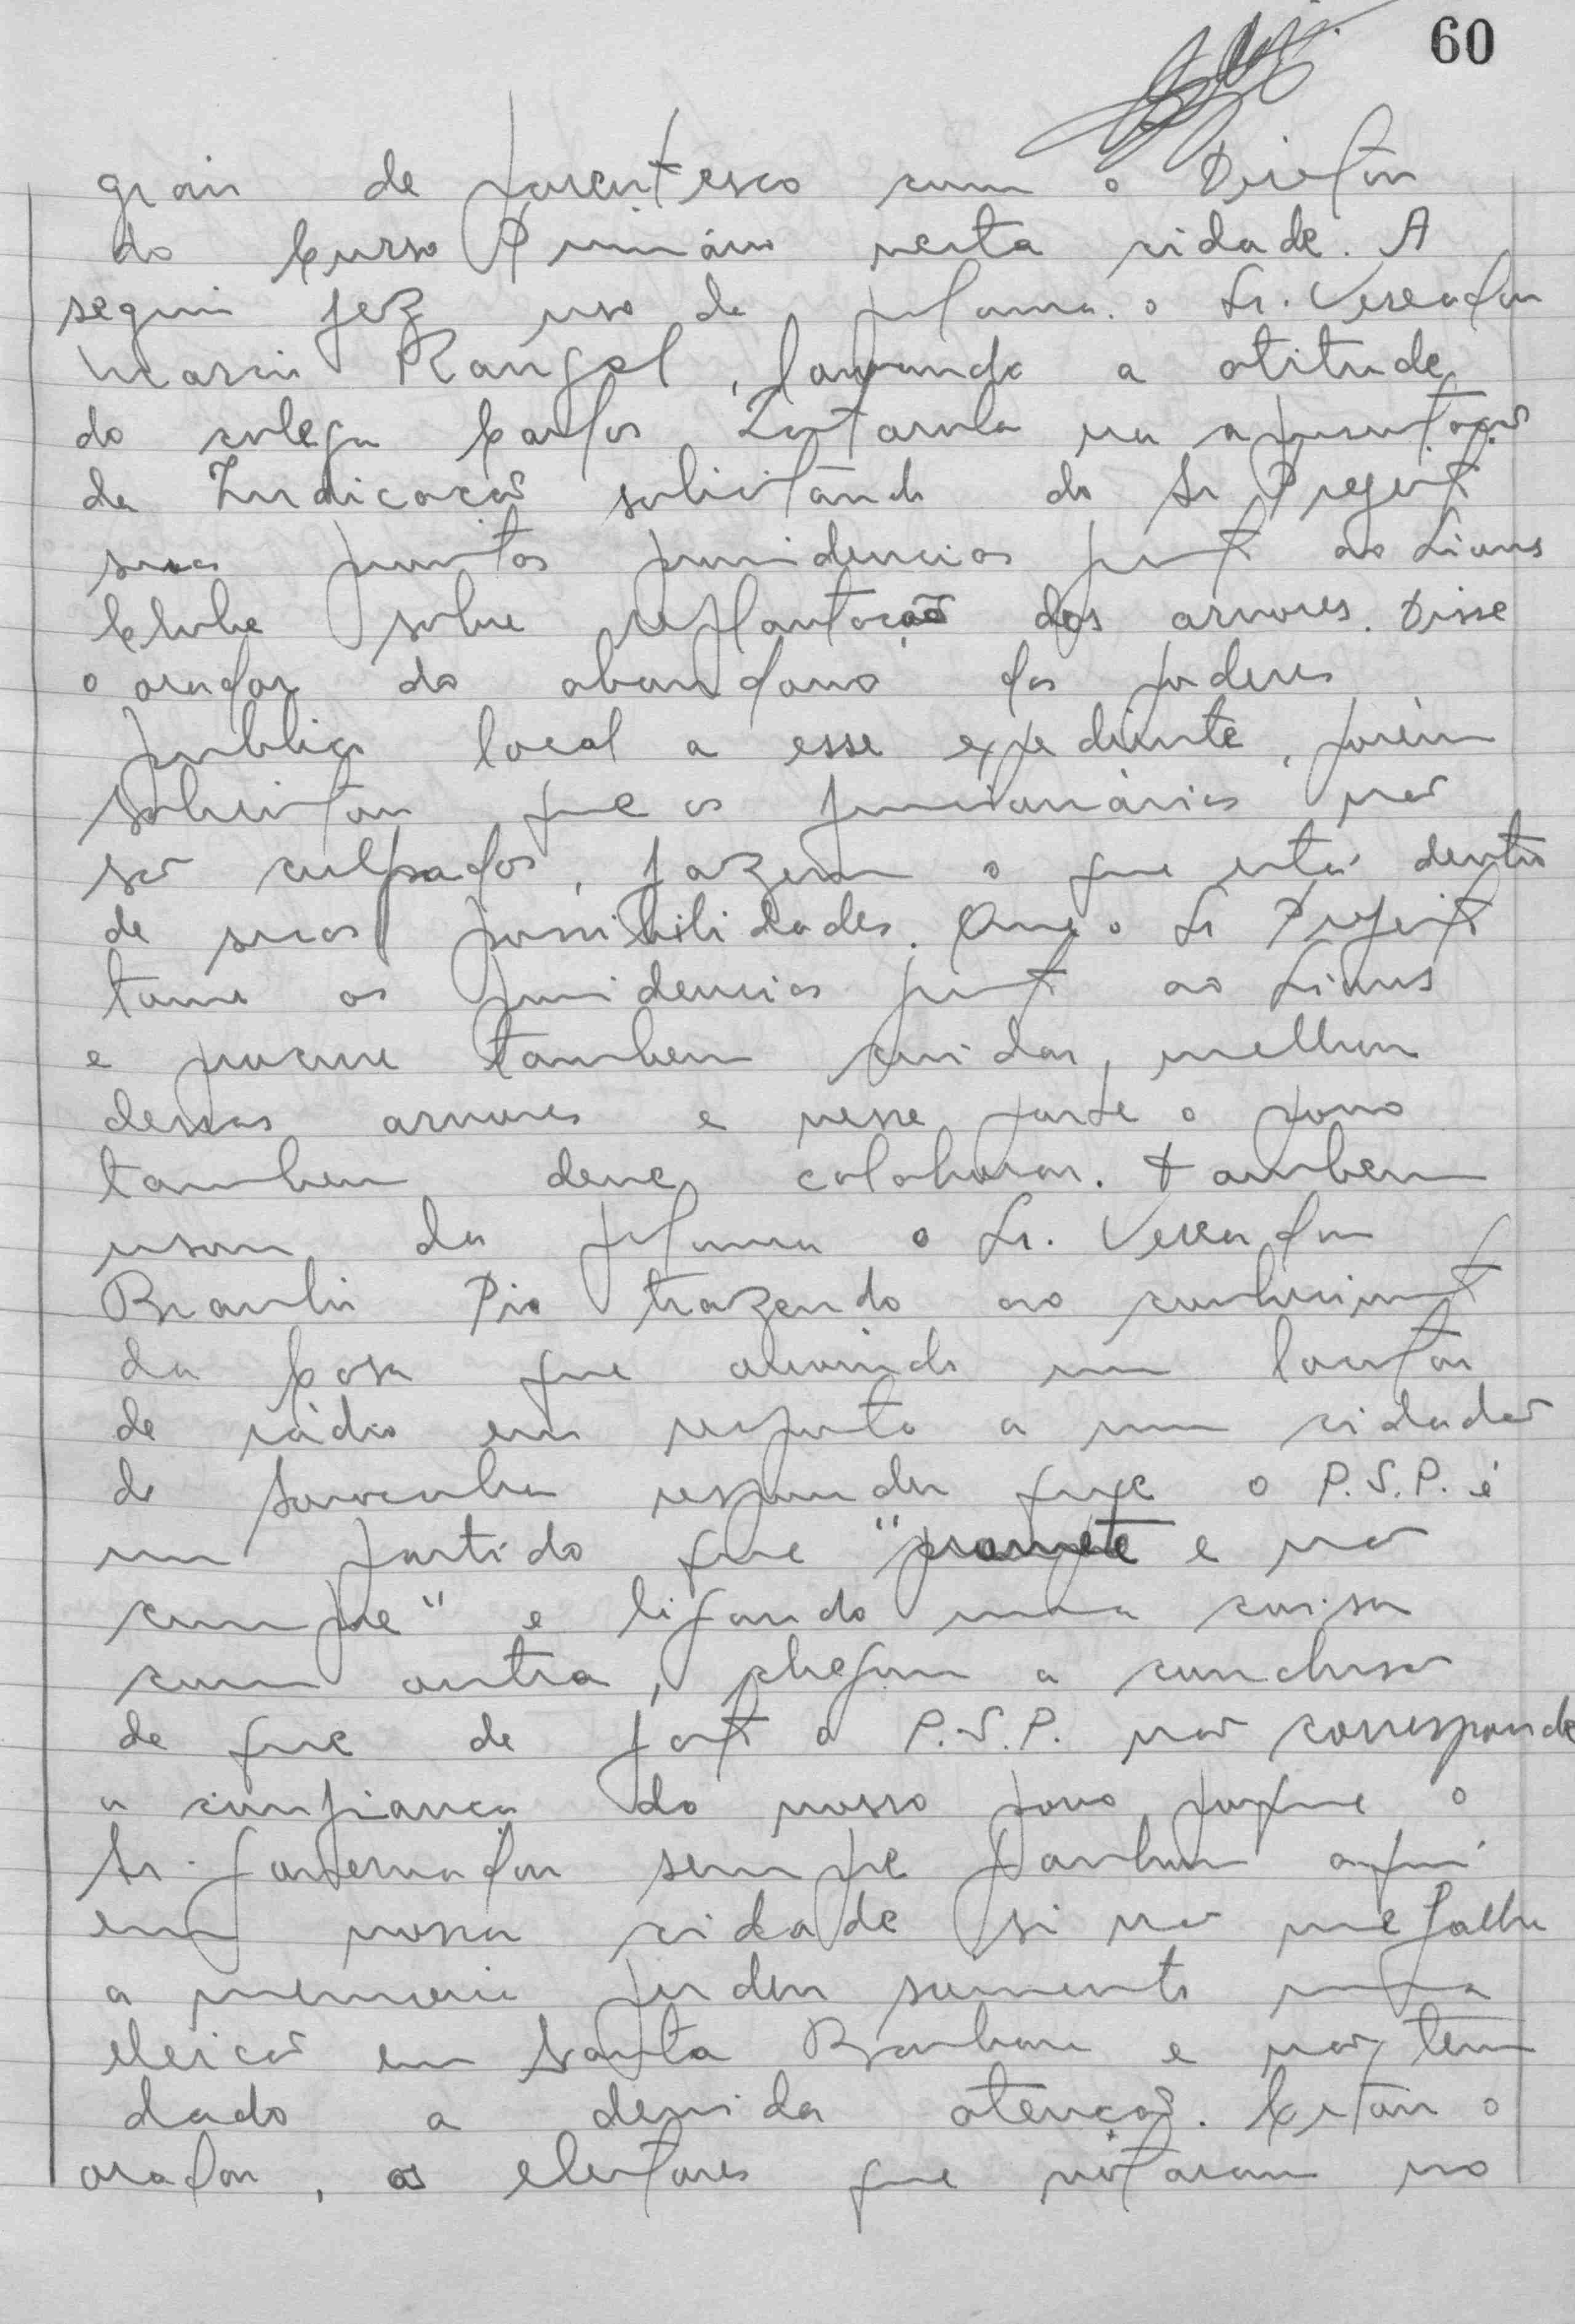 60
grau de parentesco com o Diretor
do Curso Primário nesta cidade. A
seguir fez uso da palavra o Sr. Vereador
Rangel, louvando a atitude
do colega Carlos na apresentação
da Indicação solicitando do Sr Prefeito
suas prontas providencias junto ao Lions
Clube sobre replantação das arvores. Disse
o orador do abandono dos poderes
publico local a esse expediente, porém
salientou que os funcionários não
são culpados, fazem o que está dentro
de suas possibilidades. Que o Sr Prefeito
tome as providencias junto ao Lions
e procure tambem cuidar melhor
dessas arvores e nesse parte o povo
tambem deve colaborar. tambem
usou da palavra o Sr. Vereador
Braulio Pio trazendo ao conhecimento
da Casa que ouvindo um locutor
de rádio em resposta a um cidadão
de Sorocaba respondeu que o P.S.P. é
um partido que "promete e não
cumpre" e ligando uma coisa
com outra, chegou a conclusão
de que de fato o P.S.P. não corresponde
a confiança do nosso povo porque o
Sr. Governador sempre ganhou aqui
em nossa cidade si não me falha
a memoria perdeu somente uma
eleição em Santa Barbara e não tem
dado a devida atenção. Citou o
orador, os eleitores que votaram no